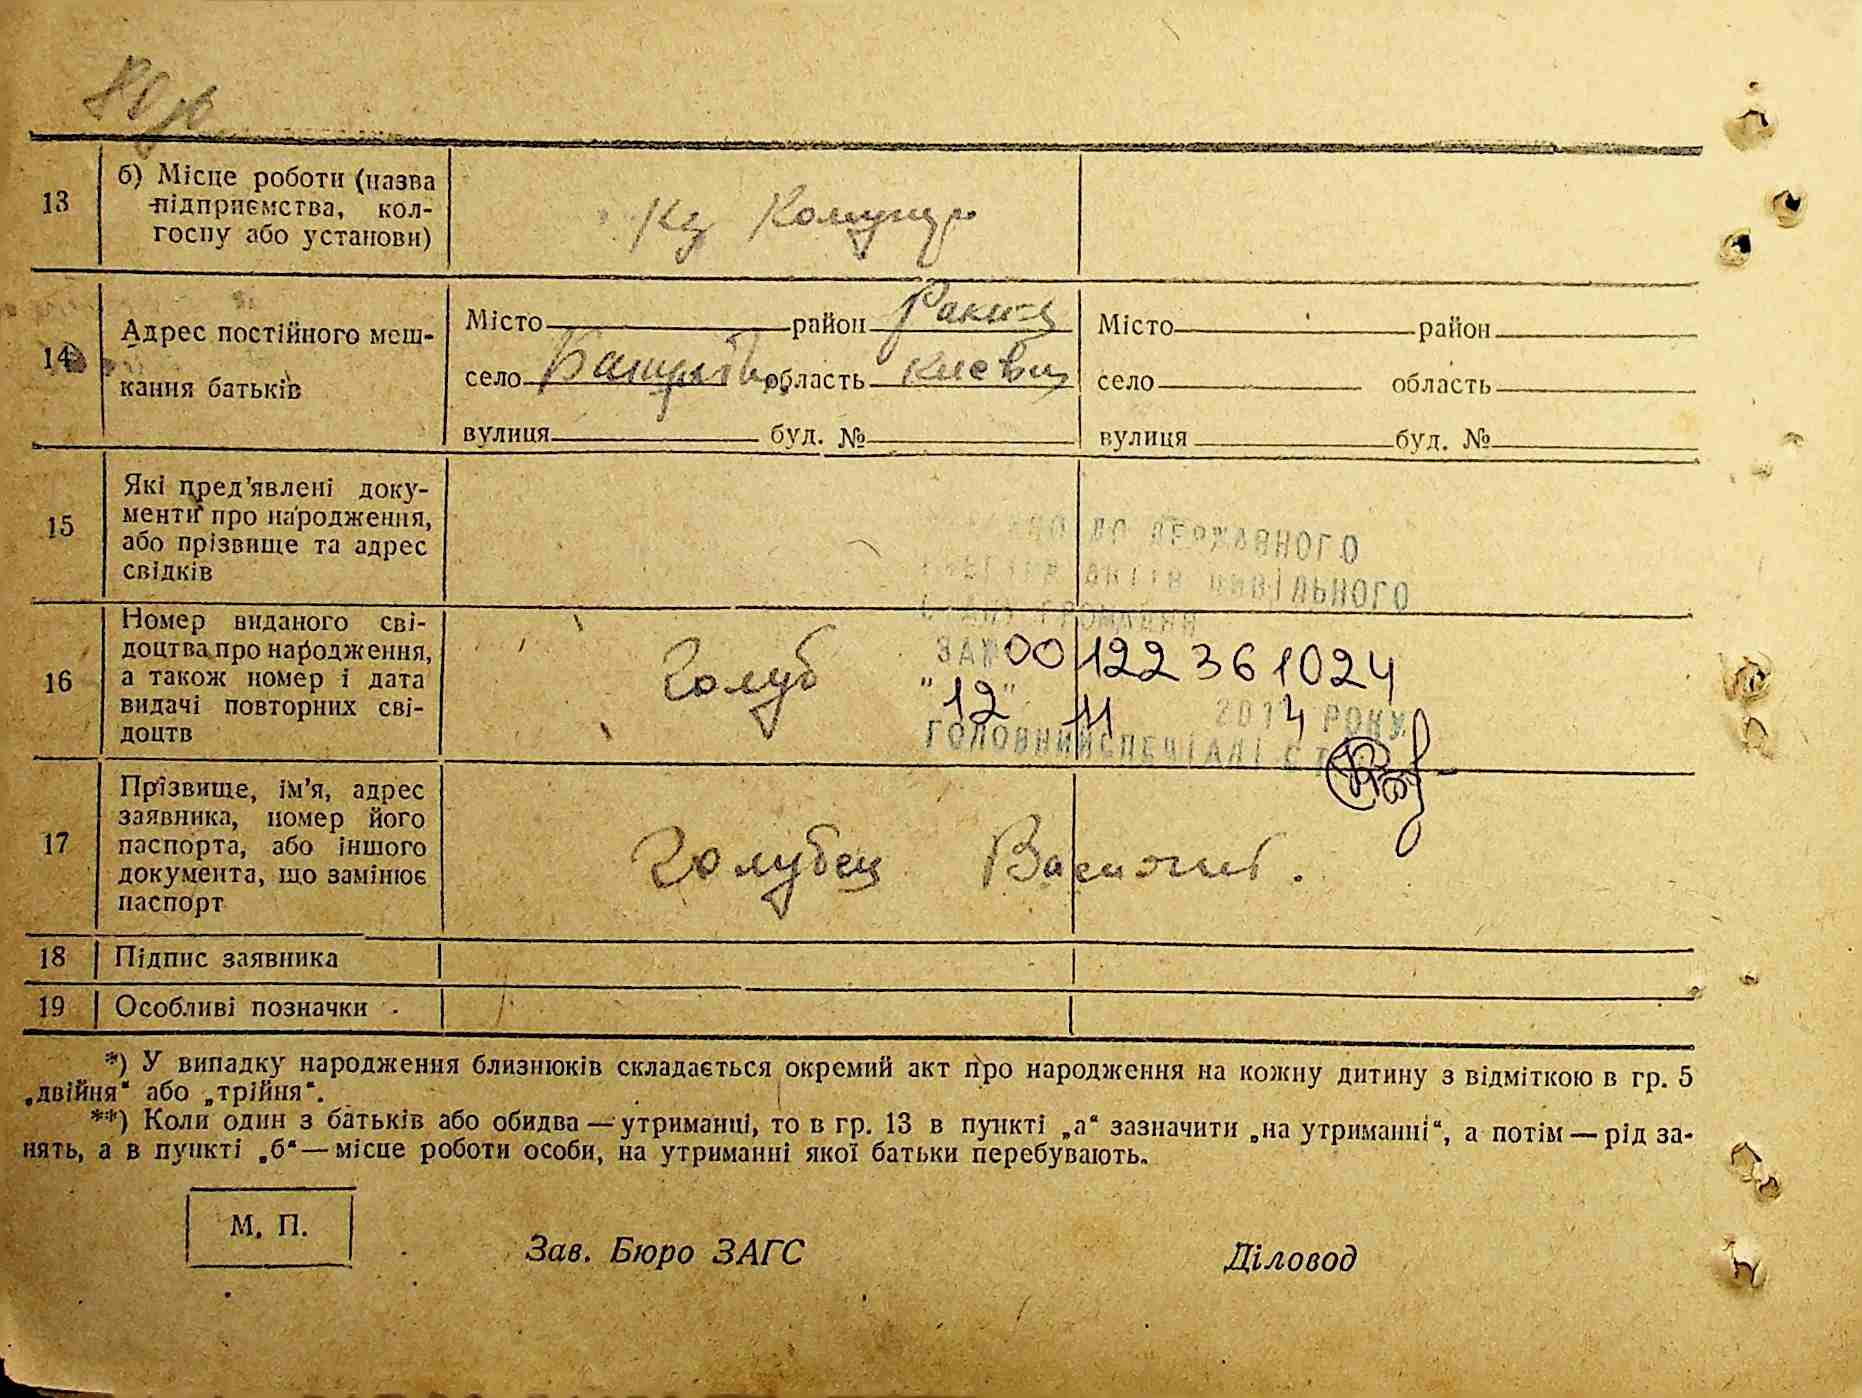 13
б) Місце роботи (назва
підприємства, кол-
госпу або установи)
Кг Комунар
14
Адрес постійного меш-
кання батьків
Місто район Ракит
село область Київ
вулиця буд. №
Місто район
село область
вулиця буд. №
15
Які пред'явлені доку-
менти про народження,
або прізвище та адрес
свідків
ДО ДЕРЖАВНОГО
АКТІВ ЦИВІЛЬНОГО
ГРОМАДЯН
16
Номер виданого сві-
доцтва про народження,
а також номер і дата
видачі повторних сві-
доцтв
Голуб
ЗА № 00122361024
"12" 11 2014 РОКУ
ГОЛОВНИЙ СПЕЦІАЛІСТ
17
Прізвище, ім'я, адрес
заявника, номер його
паспорта, або іншого
документа, що замінює
паспорт
Голубец
18 Підпис заявника
19 Особливі позначки
*) У випадку народження близнюків складається окремий акт про народження на кожну дитину з відміткою в гр. 5
„двійня“ або „трійня“.
**) Коли один з батьків або обидва — утриманці, то в гр. 13 в пункті „а“ зазначити „на утриманні“, а потім — рід за-
нять, а в пункті „б“ — місце роботи особи, на утриманні якої батьки перебувають.
М. П.
Зав. Бюро ЗАГС
Діловод